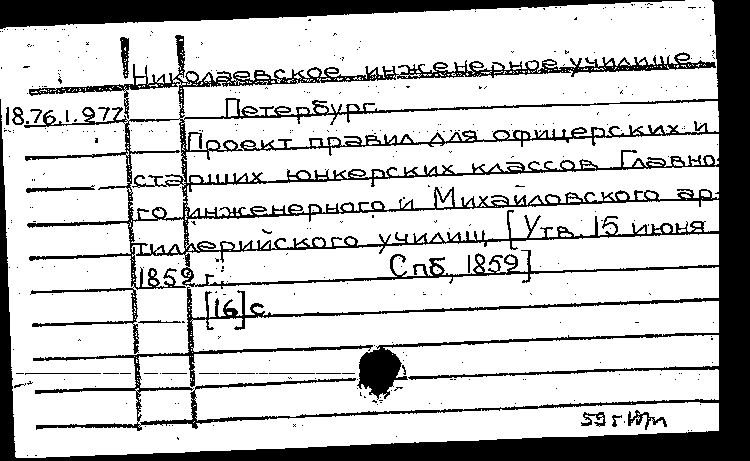 Николаевское инженерное училище
18.76.1.977
Петербург.
Проект правил для офицерских и
старших юнкерских классов Главно-
го инженерного и Михайловского ар-
тиллерийского училищ. [Утв. 15 июня
1859 г.; Спб, 1859]
[16] с.